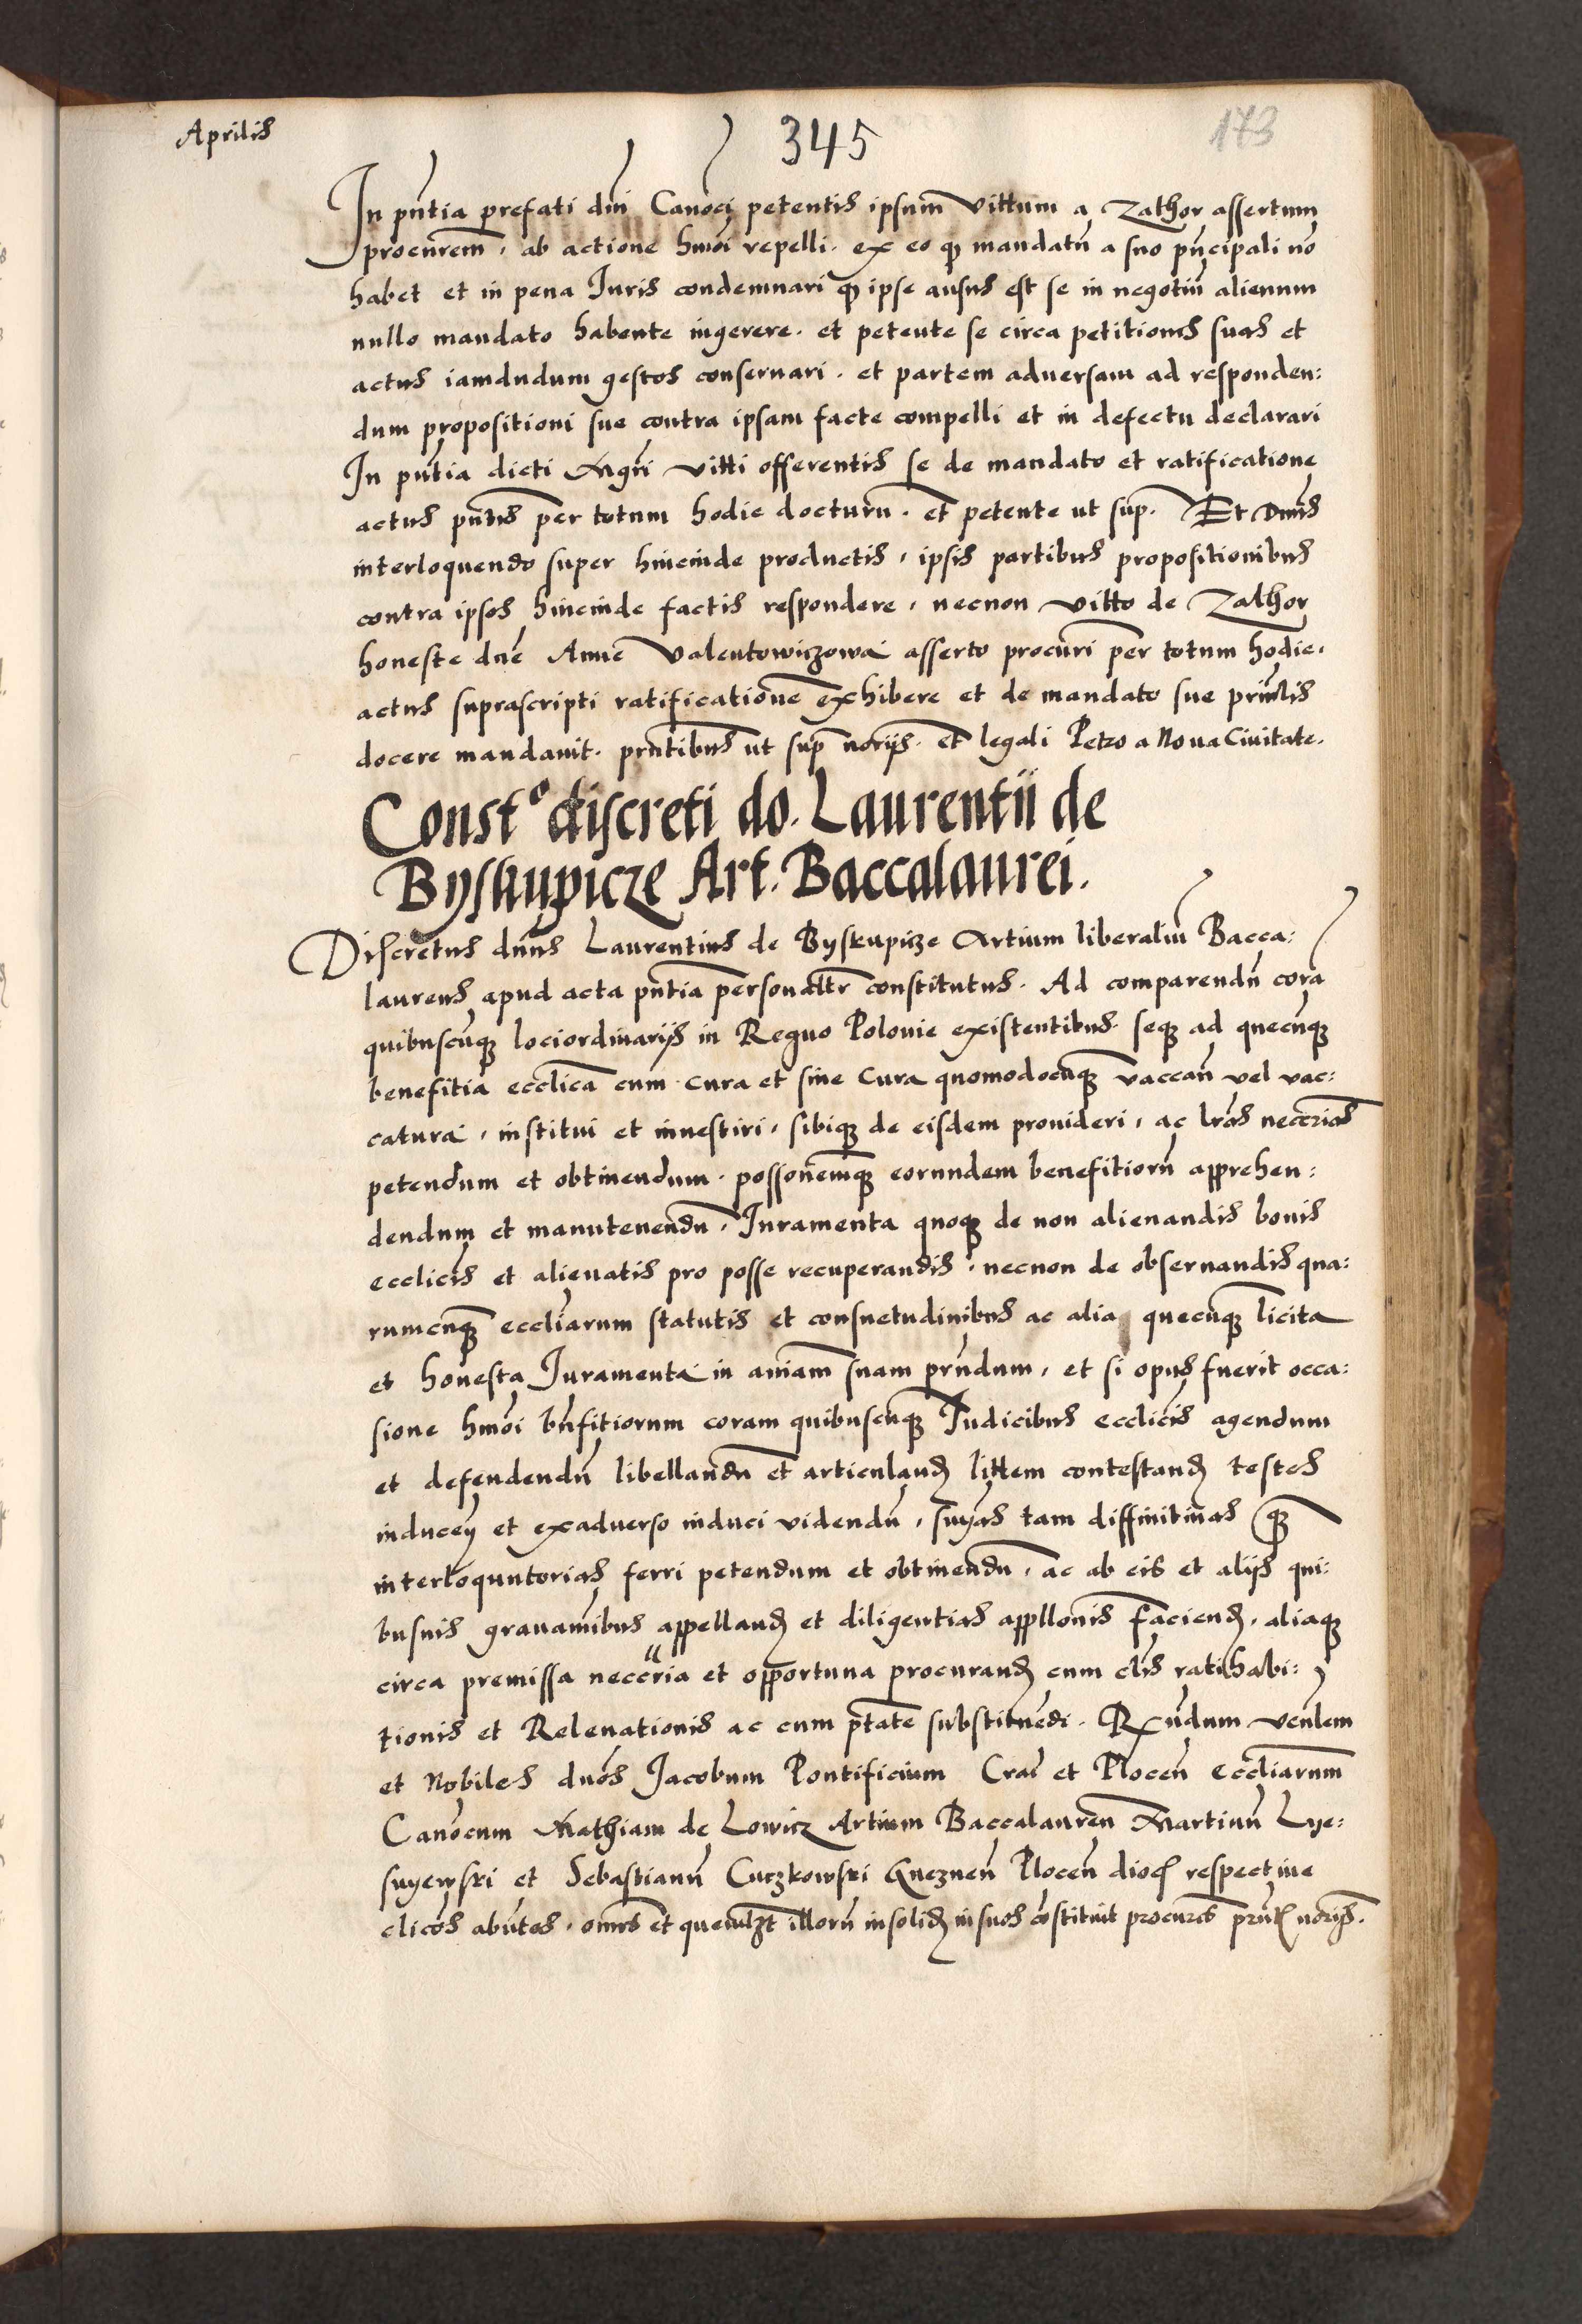 Aprilis
345
173
In pñtia prefati dñi Canõci petentis ipsum Vittum a Zathor assertum
procurem̃, ab actione hmõi repelli. ex eo q̃ mandatũ a suo pñcipali nõ
habet et in pena Iuris condemnari q̃ ipse ausus est se in negotiũ alienum
nullo mandato habente ingerere. et petente se circa petitiones suas et
actus iamdudum gestos conseruari. et partem aduersam ad responden:
dum propositioni sue contra ipsam facte compelli et in defectu declarari
In pñtia dicti Mgrĩ Vitti offerentis se de mandato et ratificatione
actus pñtis per totum hodie docturũ. et petente ut sup̃. Et Dñus
interloquendo super hincinde productis, ipsis partibus propositionibus
contra ipsos hincinde factis respondere, necnon Vitto de Zathor
honeste dnẽ Anne Valentowiczowa asserto procurĩ per totum hodie.
actus suprascripti ratificationẽ exhibere et de mandato sue priñlis
docere mandauit. prñtibus ut sup̃ norijs. et legali Petro a Noua Ciuitate.
Const⁰ discreti do. Laurentii de
Byskupicze Art. Baccalaurei.
Discretus dñus Laurentius de Byskupicze Artium liberaliũ Bacca:
laureus apud acta pñtia personaltr̃ constitutus. Ad comparendũ corã
quibuscũq; lociordinarijs in Regno Polonie existentibus. seq; ad quecũq;
benefitia eccl̃ica cum cura et sine cura quomodocũq; vaccañ vel vac:
catura, institui et inuestiri, sibiq; de eisdem prouideri, ac lrãs neccr̃ias
petendum et obtinendum. possionẽmq; eorundem benefitiorũ apprehen:
dendum et manutenendũ, Iuramenta quoq; de non alienandis bonis
eccl̃icis et alienatis pro posse recuperandis, necnon de obseruandis qua:
rumcũq; eccl̃iarum statutis et consuetudinibus ac alia quecũq; licita
et honesta Iuramenta in aniãm suam prñdum, et si opus fuerit occa:
sione hmõi bñfitiorum coram quibuscũq; Iudicibus eccl̃icis agendum
et defendendũ libellandũ et articulanđ littem contestanđ testes
inducen̄ et exaduerso induci videndũ, sñias tam diffinitiuas q̃
interloquutorias ferri petendum et obtinendũ, ac ab eis et alijs qui:
busuis grauamĩbus appellanđ et diligentias appllonĩs facienđ, aliaq;
circa premissa neccr̃ia et opportuna procuranđ cum cl̃is ratihabi:
tionis et Releuationis ac cum ptãte substituẽdi. Rx̃ndum Venlẽm
et Nobiles dnõs Jacobum Pontificium Crac̃ et Plocen̄ Eccl̃iarum
Canõcum Mathiam de Lowicz Artium Baccalaureũ Martinũ Lye:
snyewski et Sebastianũ Cuczkowski Gnezneñ Ploceñ dioc̃ respectiue
cl̃icos abñtes. omẽs et quemlz̃t illorũ insoliđ in suos cõstituit procures prñt̃ norijs.